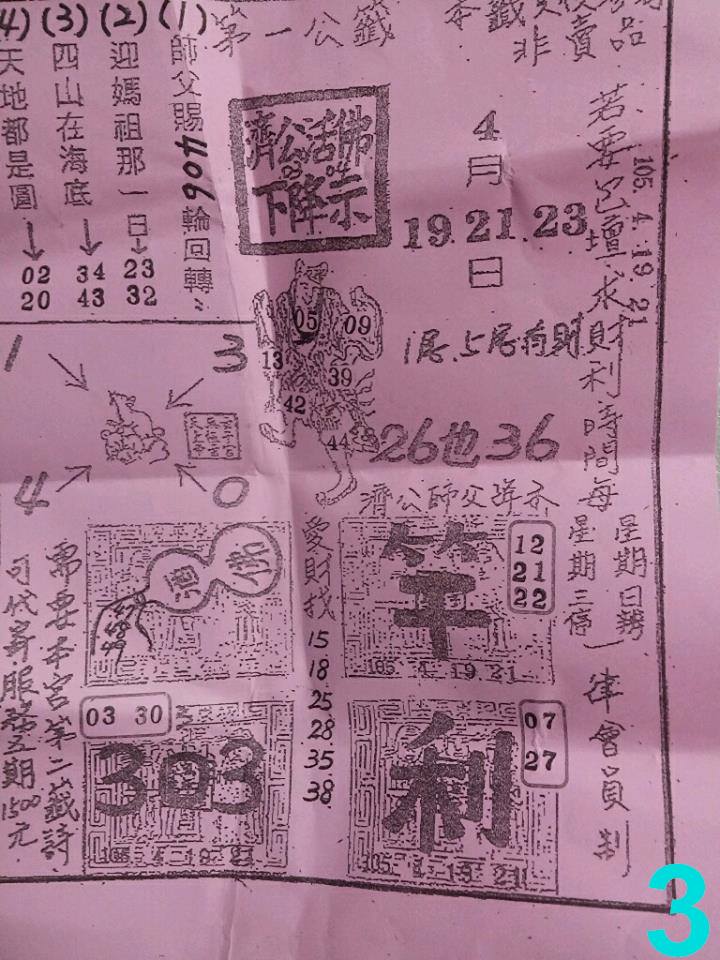 第一公籤
本籤
非賣品
若要呂壇求財利時間每
星期日辦
星期三停
一律會員制
105. 4. 19. 21
4月
19. 21. 23
日
濟公活佛
下降示
(1)
師父賜406輪回轉
(2)
迎媽祖那一日↓
23
32
(3)
四山在海底↓
34
43
(4)
天地都是圖↓
02
20
05
09
13
39
42
44
1尾.5尾有財
26也36
濟公師父
1
3
4
0
愛財找
15
18
25
28
35
38
12
21
22
105. 4. 19 21
利
07
27
105. 4. 19 21
47
48
49
03 30
303
105. 4. 19 21
需要本宮第二籤詩
可代寄服務五期1500元
3